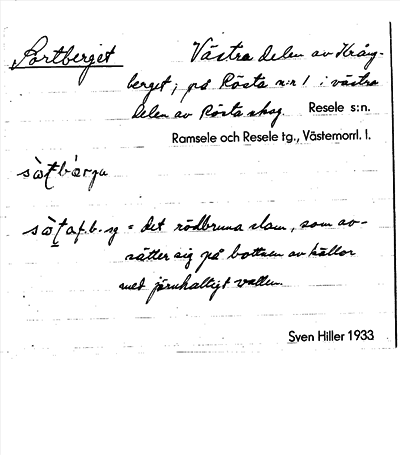 Sortberget
Västra delen av Krång-
berget; på Rösta n:r 1 i västra
delen av Rösta skog. Resele s:n.
Ramsele och Resele tg., Västernorrl. l.
= det rödbruna slam, som av-
sätter sig på bottnen av källor
med järnhaltigt vatten.
Sven Hiller 1933